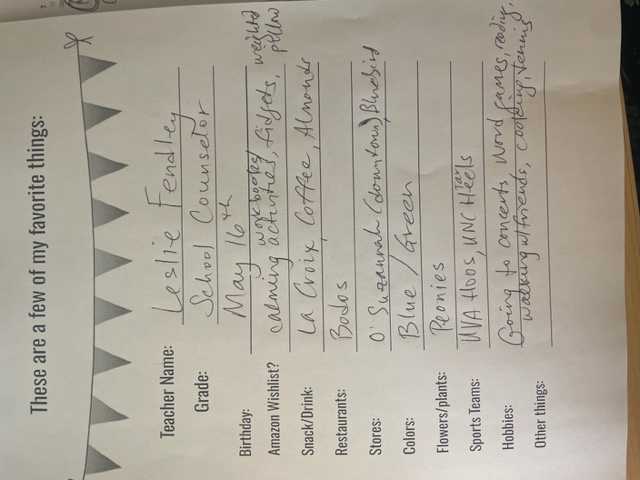 These are a few of my favorite things:
Teacher Name: Leslie Fendley
Grade: School Counselor
Birthday: May 16th
workbooks, weighted
Amazon Wishlist? calming activities, fidgets, pillow
Snack/Drink: La Croix, Coffee, Almonds
Restaurants: Bodos
Stores: O' Suzannah (downtown), Bluebird
Colors: Blue / Green
Flowers/plants: Peonies
Sports Teams: UVA Hoos, UNC Tar Heels
Hobbies: Going to concerts, Word games, reading,
walking w/ friends, cooking, tennis
Other things: